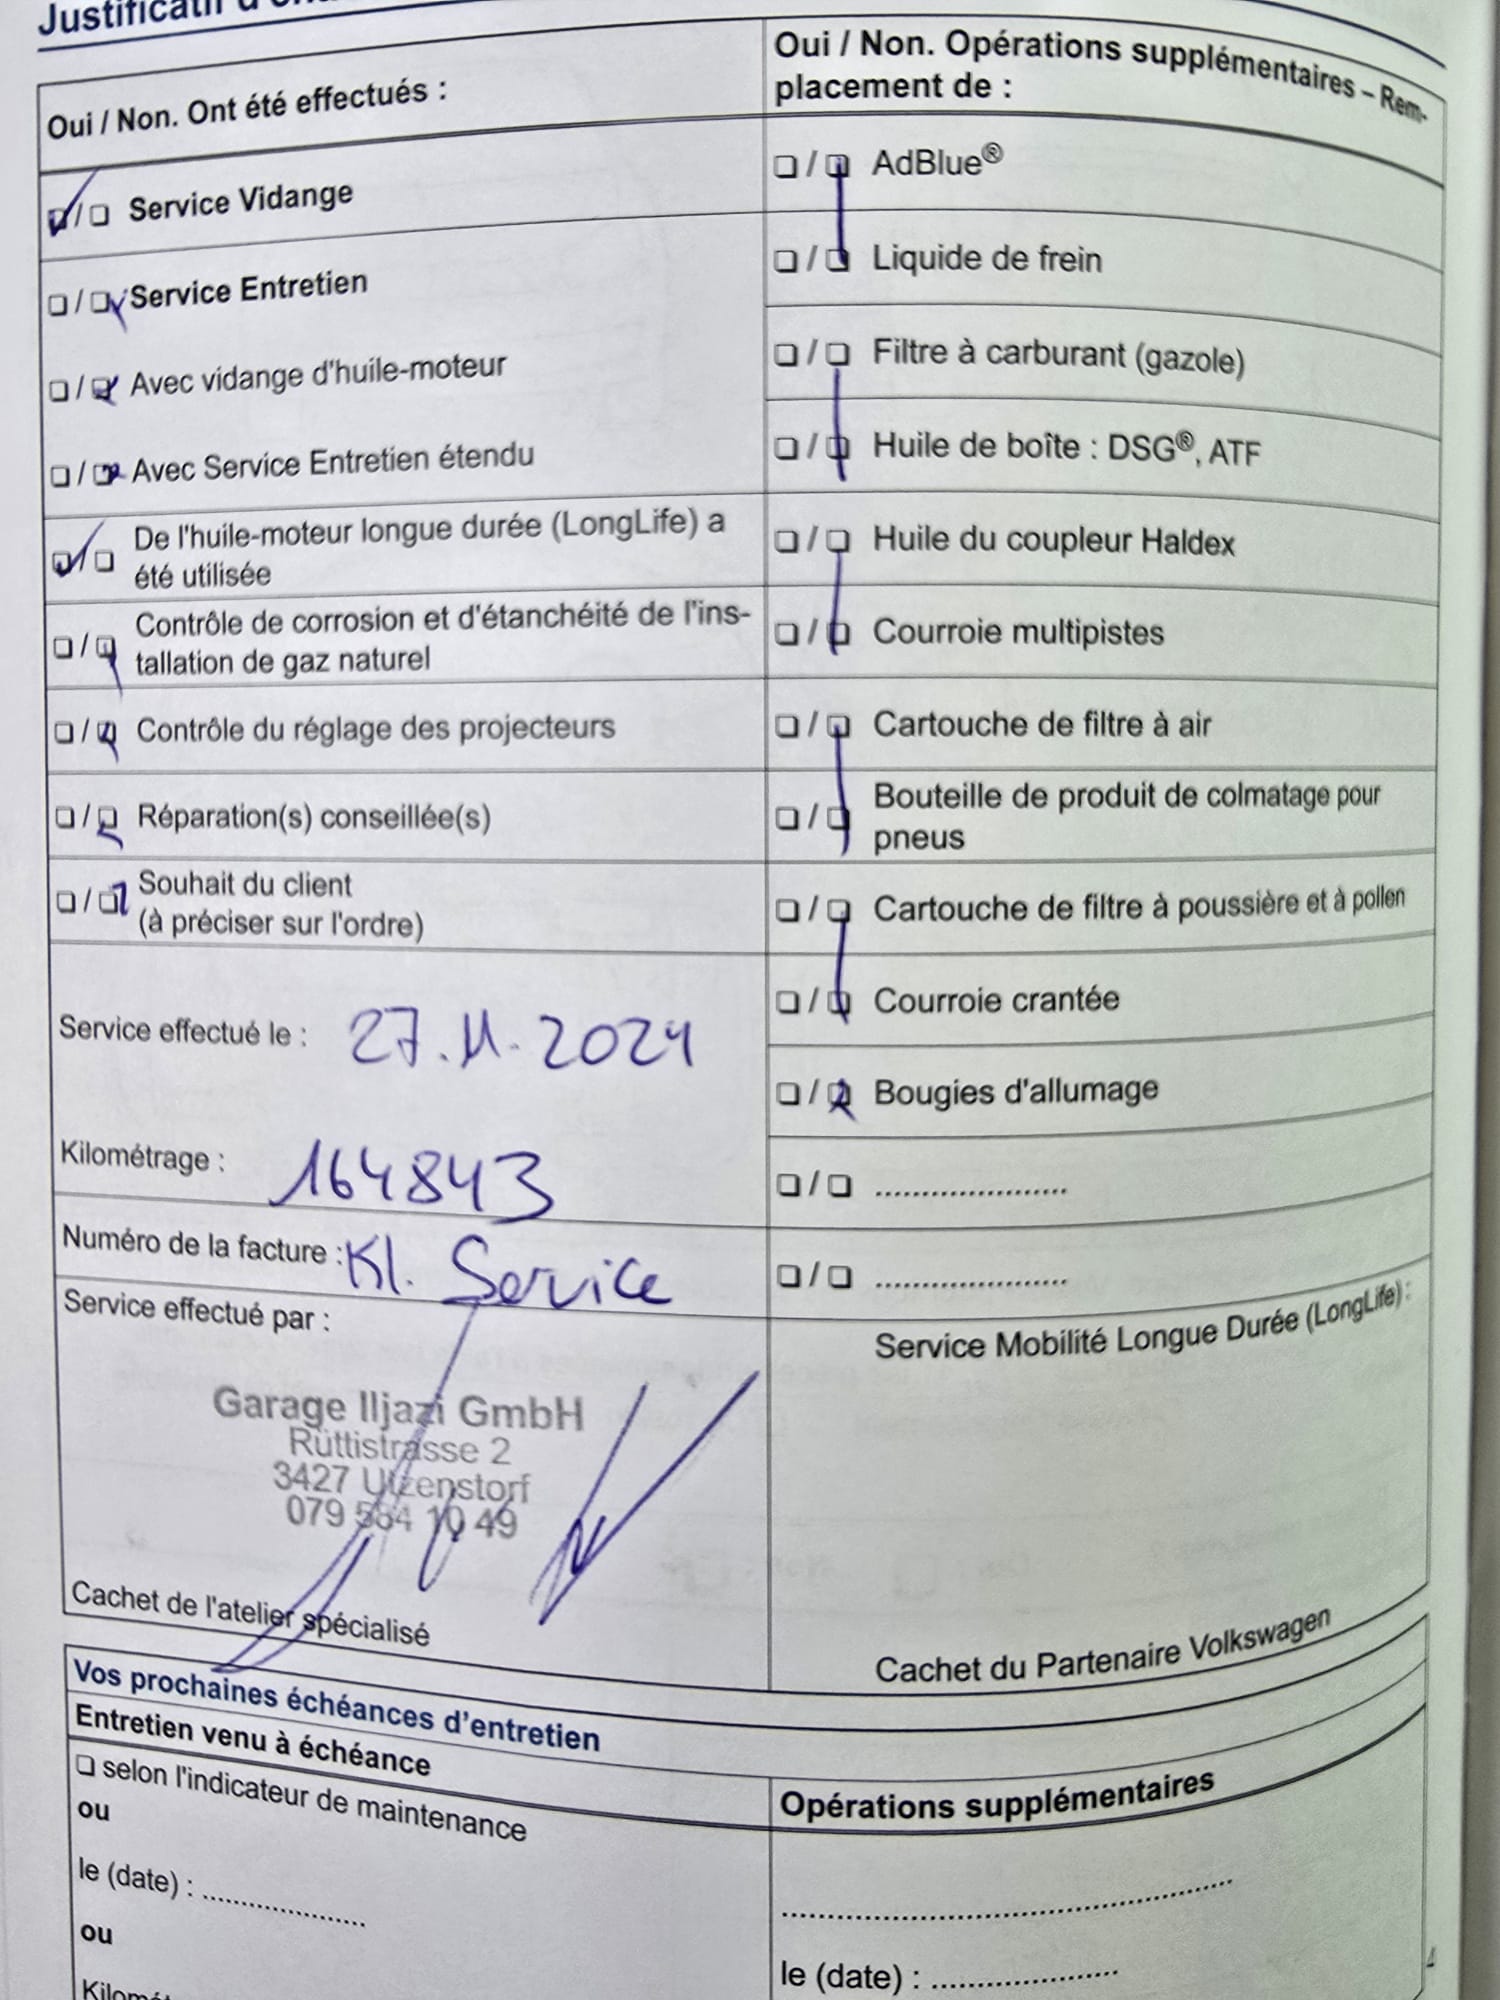 Justificatif d'
Oui / Non. Ont été effectués :
❑/❑ Service Vidange
❑/❑ Service Entretien
❑/❑ Avec vidange d'huile-moteur
❑/❑ Avec Service Entretien étendu
❑/❑ De l'huile-moteur longue durée (LongLife) a
été utilisée
❑/❑ Contrôle de corrosion et d'étanchéité de l'ins-
tallation de gaz naturel
❑/❑ Contrôle du réglage des projecteurs
❑/❑ Réparation(s) conseillée(s)
❑/❑ Souhait du client
(à préciser sur l'ordre)
Service effectué le : 27.11.2024
Kilométrage : 164843
Numéro de la facture : Kl. Service
Service effectué par :
Garage Iljazi GmbH
Rüttistrasse 2
3427 Utzenstorf
079 584 10 49
Cachet de l'atelier spécialisé
Oui / Non. Opérations supplémentaires – Rem-
placement de :
❑/❑ AdBlue®
❑/❑ Liquide de frein
❑/❑ Filtre à carburant (gazole)
❑/❑ Huile de boîte : DSG®, ATF
❑/❑ Huile du coupleur Haldex
❑/❑ Courroie multipistes
❑/❑ Cartouche de filtre à air
❑/❑ Bouteille de produit de colmatage pour
pneus
❑/❑ Cartouche de filtre à poussière et à pollen
❑/❑ Courroie crantée
❑/❑ Bougies d'allumage
❑/❑ .....................
❑/❑ .....................
Service Mobilité Longue Durée (LongLife) :
Cachet du Partenaire Volkswagen
Vos prochaines échéances d'entretien
Entretien venu à échéance
❑ selon l'indicateur de maintenance
ou
le (date) : ..................
ou
Kilomét
Opérations supplémentaires
..................................................
le (date) : .....................